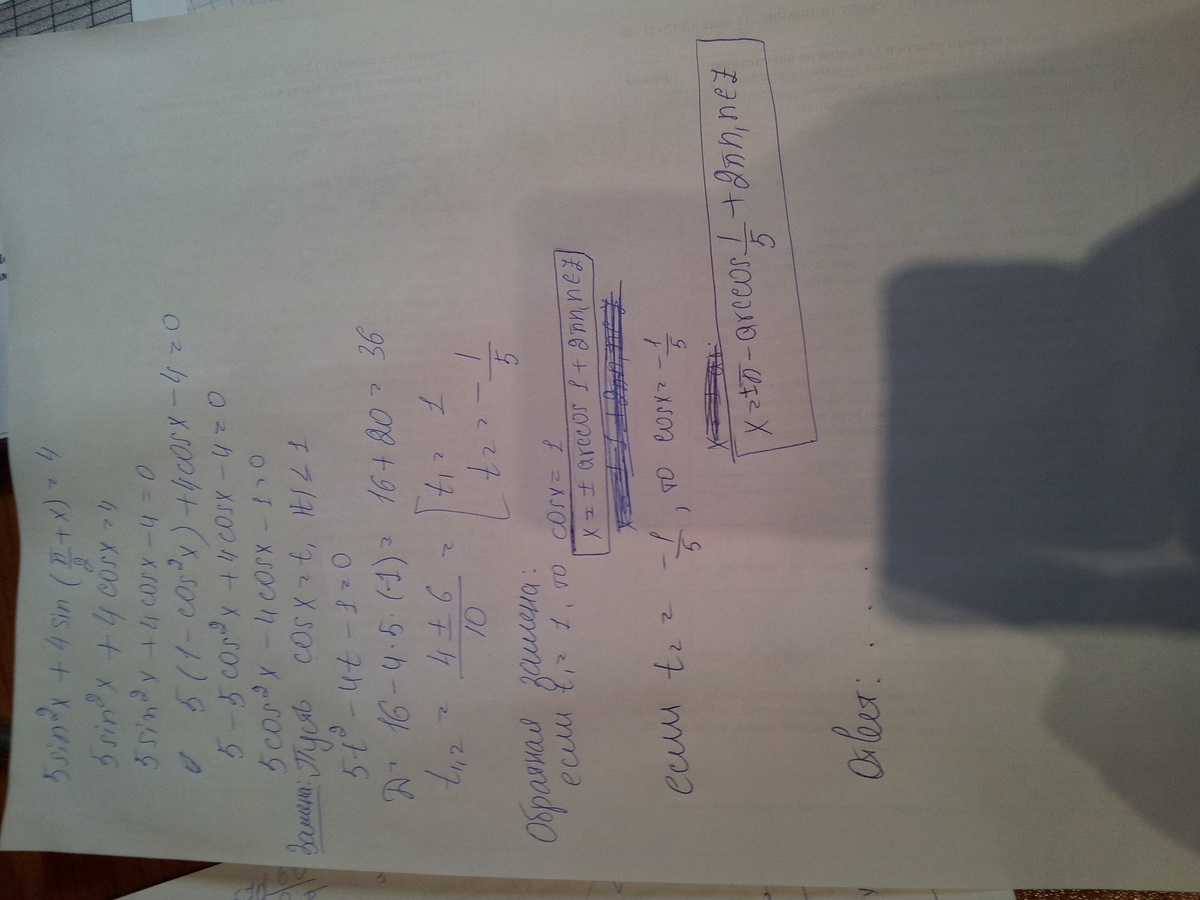 5sin²x + 4sin(π/2 + x) = 4
5sin²x + 4cosx = 4
5sin²x + 4cosx - 4 = 0
5(1 - cos²x) + 4cosx - 4 = 0
5 - 5cos²x + 4cosx - 4 = 0
5cos²x - 4cosx - 1 = 0
Замена: Пусть cosx = t, |t| ≤ 1
5t² - 4t - 1 = 0
D = 16 - 4·5·(-1) = 16 + 20 = 36
t₁,₂ = (4 ± 6)/10 = [t₁ = 1
t₂ = -1/5
Обратная замена:
если t₁ = 1, то cosx = 1
x = ± arccos 1 + 2πn, n∈Z
если t₂ = -1/5, то cosx = -1/5
x = ±π - arccos 1/5 + 2πn, n∈Z
Ответ: . . .